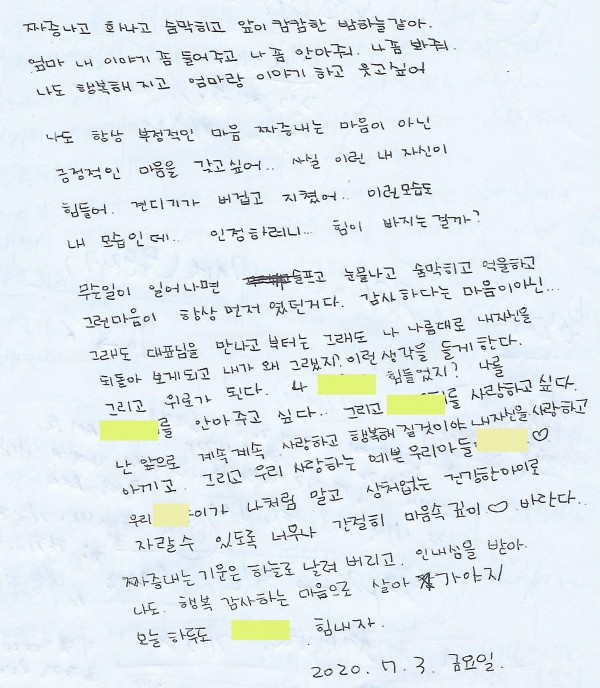 짜증나고 화나고 숨막히고 앞이 캄캄한 밤하늘같아.
엄마 내 이야기 좀 들어주고 나 좀 안아줘. 나좀 봐줘.
나도 행복해 지고 엄마랑 이야기 하고 웃고싶어
나도 항상 부정적인 마음 짜증내는 마음이 아닌
긍정적인 마음을 갖고싶어.. 사실 이런 내 자신이
힘들어. 견디기가 버겁고 지쳤어.. 이런모습도
내 모습인데.. 인정하려니... 힘이 빠지는걸까?
무슨일이 일어나면 슬프고 눈물나고 숨막히고 억울하고
그런마음이 항상 먼저 였던거다. 감사하다는 마음이아닌...
그래도 대표님을 만나고부터는 그래도 나 나름대로 내자신을
되돌아 보게되고 내가 왜 그랬지? 이런생각을 들게한다.
그리고 위로가 된다. 나 힘들었지? 나를
를 안아주고 싶다.. 그리고 를 사랑하고 싶다.
난 앞으로 계속계속 사랑하고 행복해질것이야 내자신을 사랑하고
아끼고. 그리고 우리 사랑하는 예쁜 우리아들 ♡
우리 이가 나처럼 말고 상처없는 건강한아이로
자랄수 있도록 너무나 간절히 마음속 깊이 ♡ 바란다..
짜증내는 기운은 하늘로 날려 버리고. 인내심을 받아.
나도. 행복 감사하는 마음으로 살아 가야지
오늘 하루도 힘내자.
2020. 7. 3. 금요일.